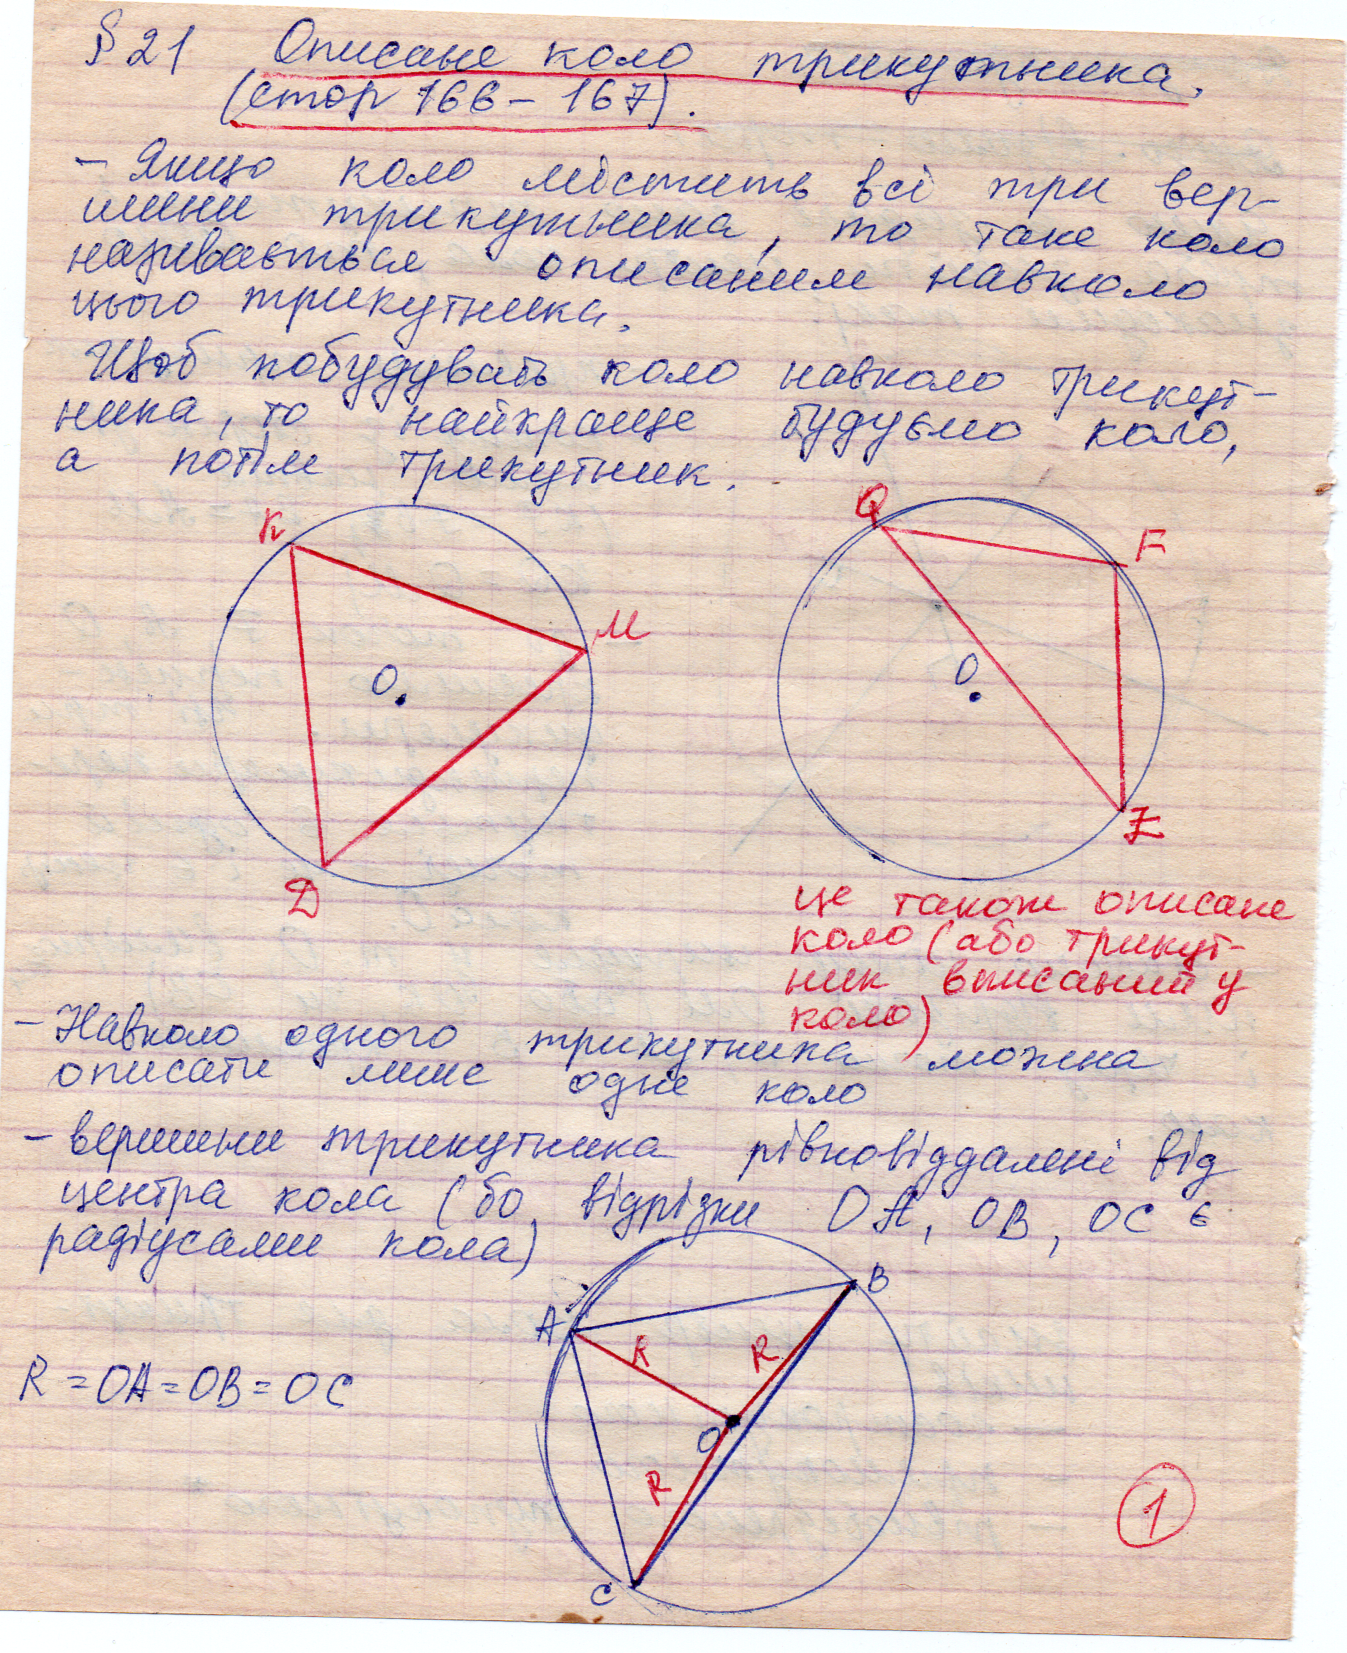 § 21 Описане коло трикутника.
(стор 166 – 167).
– Якщо коло містить всі три вер-
шини трикутника, то таке коло
називається описаним навколо
цього трикутника.
Щоб побудувать коло навколо трикут-
ника, то найкраще будуємо коло,
а потім трикутник.
K
M
O
D
Q
F
O
E
це також описане
коло (або трикут-
ник вписаний у
коло)
– Навколо одного трикутника можна
описати лише одне коло
– вершини трикутника рівновіддалені від
центра кола (бо відрізки OA, OB, OC є
радіусами кола)
A
B
R
R
R = OA = OB = OC
O
R
1
C